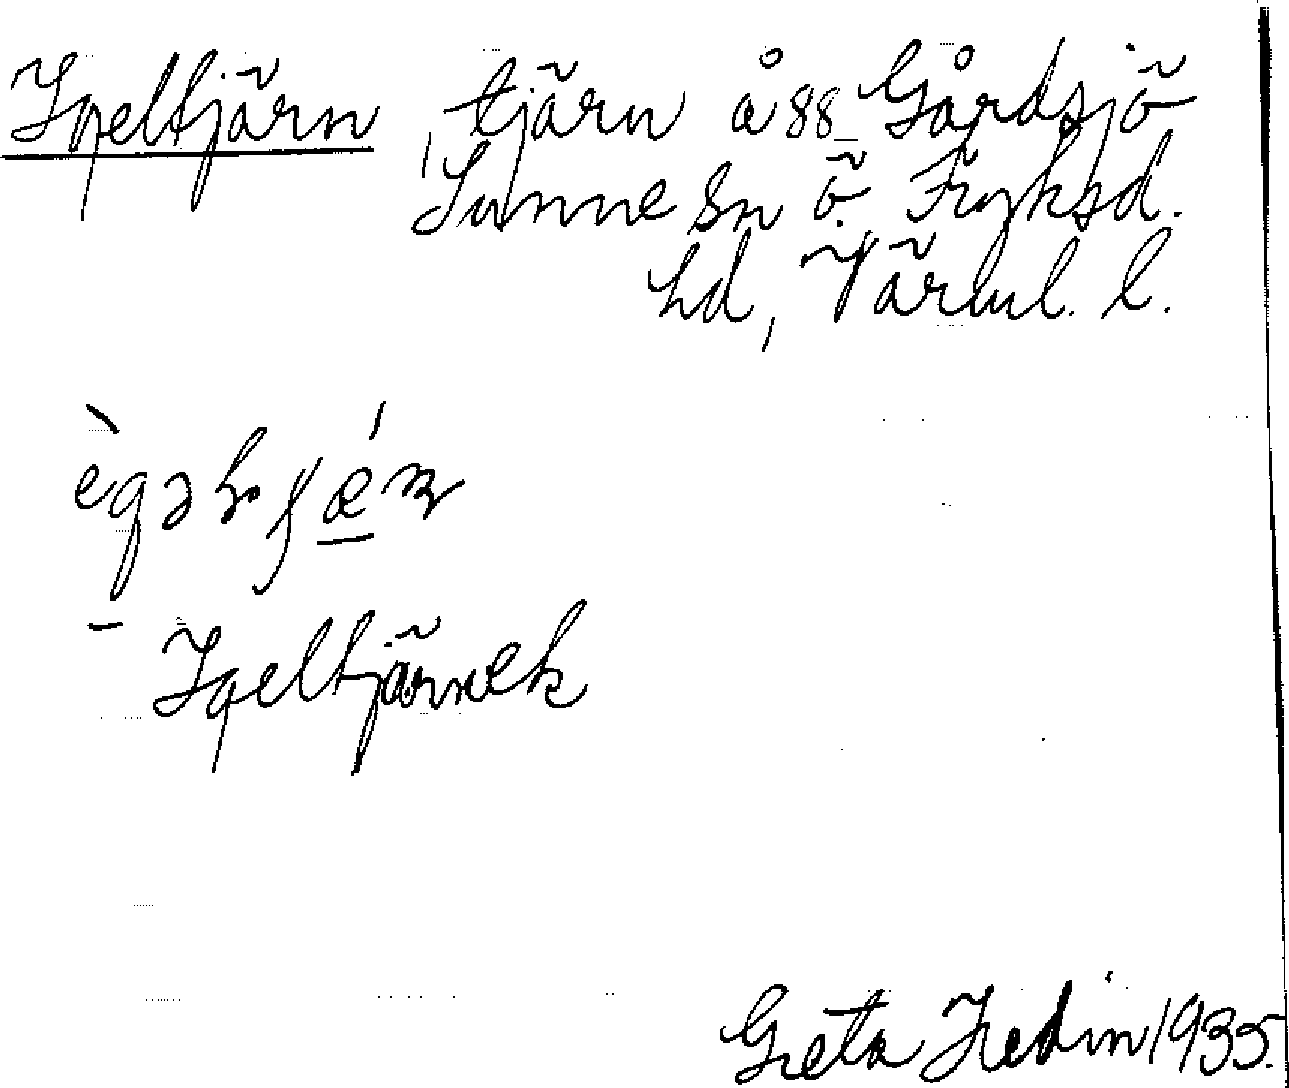 Igeltjärn, tjärn å 88 Gårdsjö
Sunne sn Ö. Fryksd.
hd, Värml. l.
Igeltjärnek
Greta Hedin 1935.